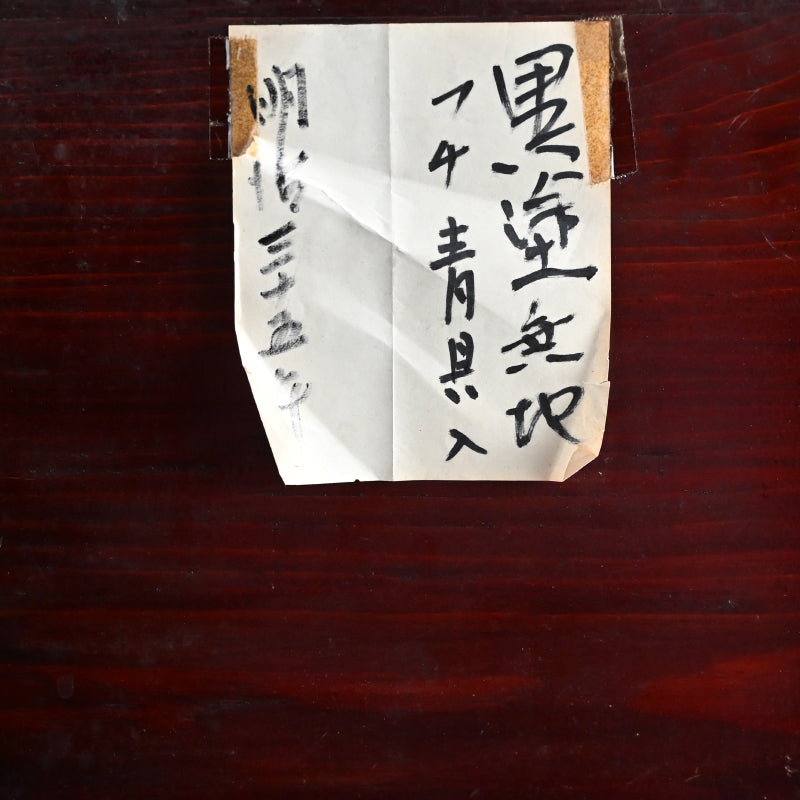 黒塗無地
フチ青貝入
明治三十五年